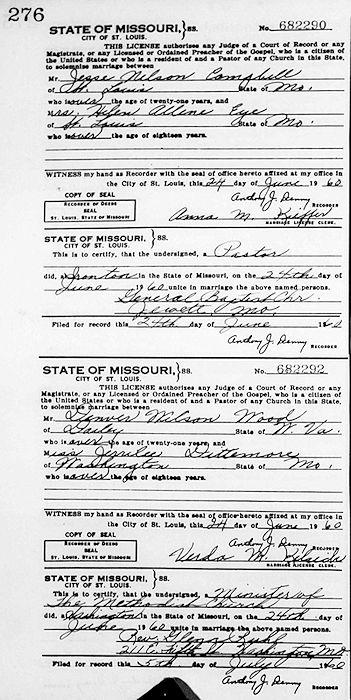 276
STATE OF MISSOURI, } SS. No. 682290
CITY OF ST. LOUIS.
THIS LICENSE authorises any Judge of a Court of Record or any
Magistrate, or any Licensed or Ordained Preacher of the Gospel, who is a citizen of
the United States or who is a resident of and a Pastor of any Church in this State,
to solemnise marriage between
Mr. Jesse Nelson Campbell
of St. Louis State of Mo.
who is over the age of twenty-one years, and
Mrs. Helen Arlene Eye
of St. Louis State of Mo.
who is over the age of eighteen years.
WITNESS my hand as Recorder with the seal of office hereto affixed at my office in
the City of St. Louis, this 24 day of June 1960
COPY OF SEAL
Anthony J. Denny RECORDER
RECORDER OF DEEDS
SEAL
ST. LOUIS, STATE OF MISSOURI
Anna M. Kieffer
MARRIAGE LICENSE CLERK.
STATE OF MISSOURI, } SS.
CITY OF ST. LOUIS.
This is to certify, that the undersigned, a Pastor
did, at Ironton in the State of Missouri, on the 24th day of
June 1960 unite in marriage the above named persons.
General Baptist Chr.
Jewett Mo.
Filed for record this 24th day of June 1960
Anthony J. Denny
RECORDER
STATE OF MISSOURI, } SS. No. 682292
CITY OF ST. LOUIS.
THIS LICENSE authorises any Judge of a Court of Record or any
Magistrate, or any Licensed or Ordained Preacher of the Gospel, who is a citizen of
the United States or who is a resident of and a Pastor of any Church in this State,
to solemnise marriage between
Mr. Denver Wilson Wood
of Dailey State of W. Va.
who is over the age of twenty-one years, and
Miss Jerrilee Dittemore
of Washington State of Mo.
who is over the age of eighteen years.
WITNESS my hand as Recorder with the seal of office hereto affixed at my office in
the City of St. Louis, this 24 day of June 1960
COPY OF SEAL
Anthony J. Denny RECORDER
RECORDER OF DEEDS
SEAL
ST. LOUIS, STATE OF MISSOURI
Verda M.
MARRIAGE LICENSE CLERK.
STATE OF MISSOURI, } SS.
CITY OF ST. LOUIS.
This is to certify, that the undersigned, a Minister of
The Methodist Church
did, at Washington in the State of Missouri, on the 24th day of
June 1960 unite in marriage the above named persons.
Rev.
211 E. Fifth St. Washington Mo
Filed for record this 5th day of July 1960
Anthony J. Denny
RECORDER